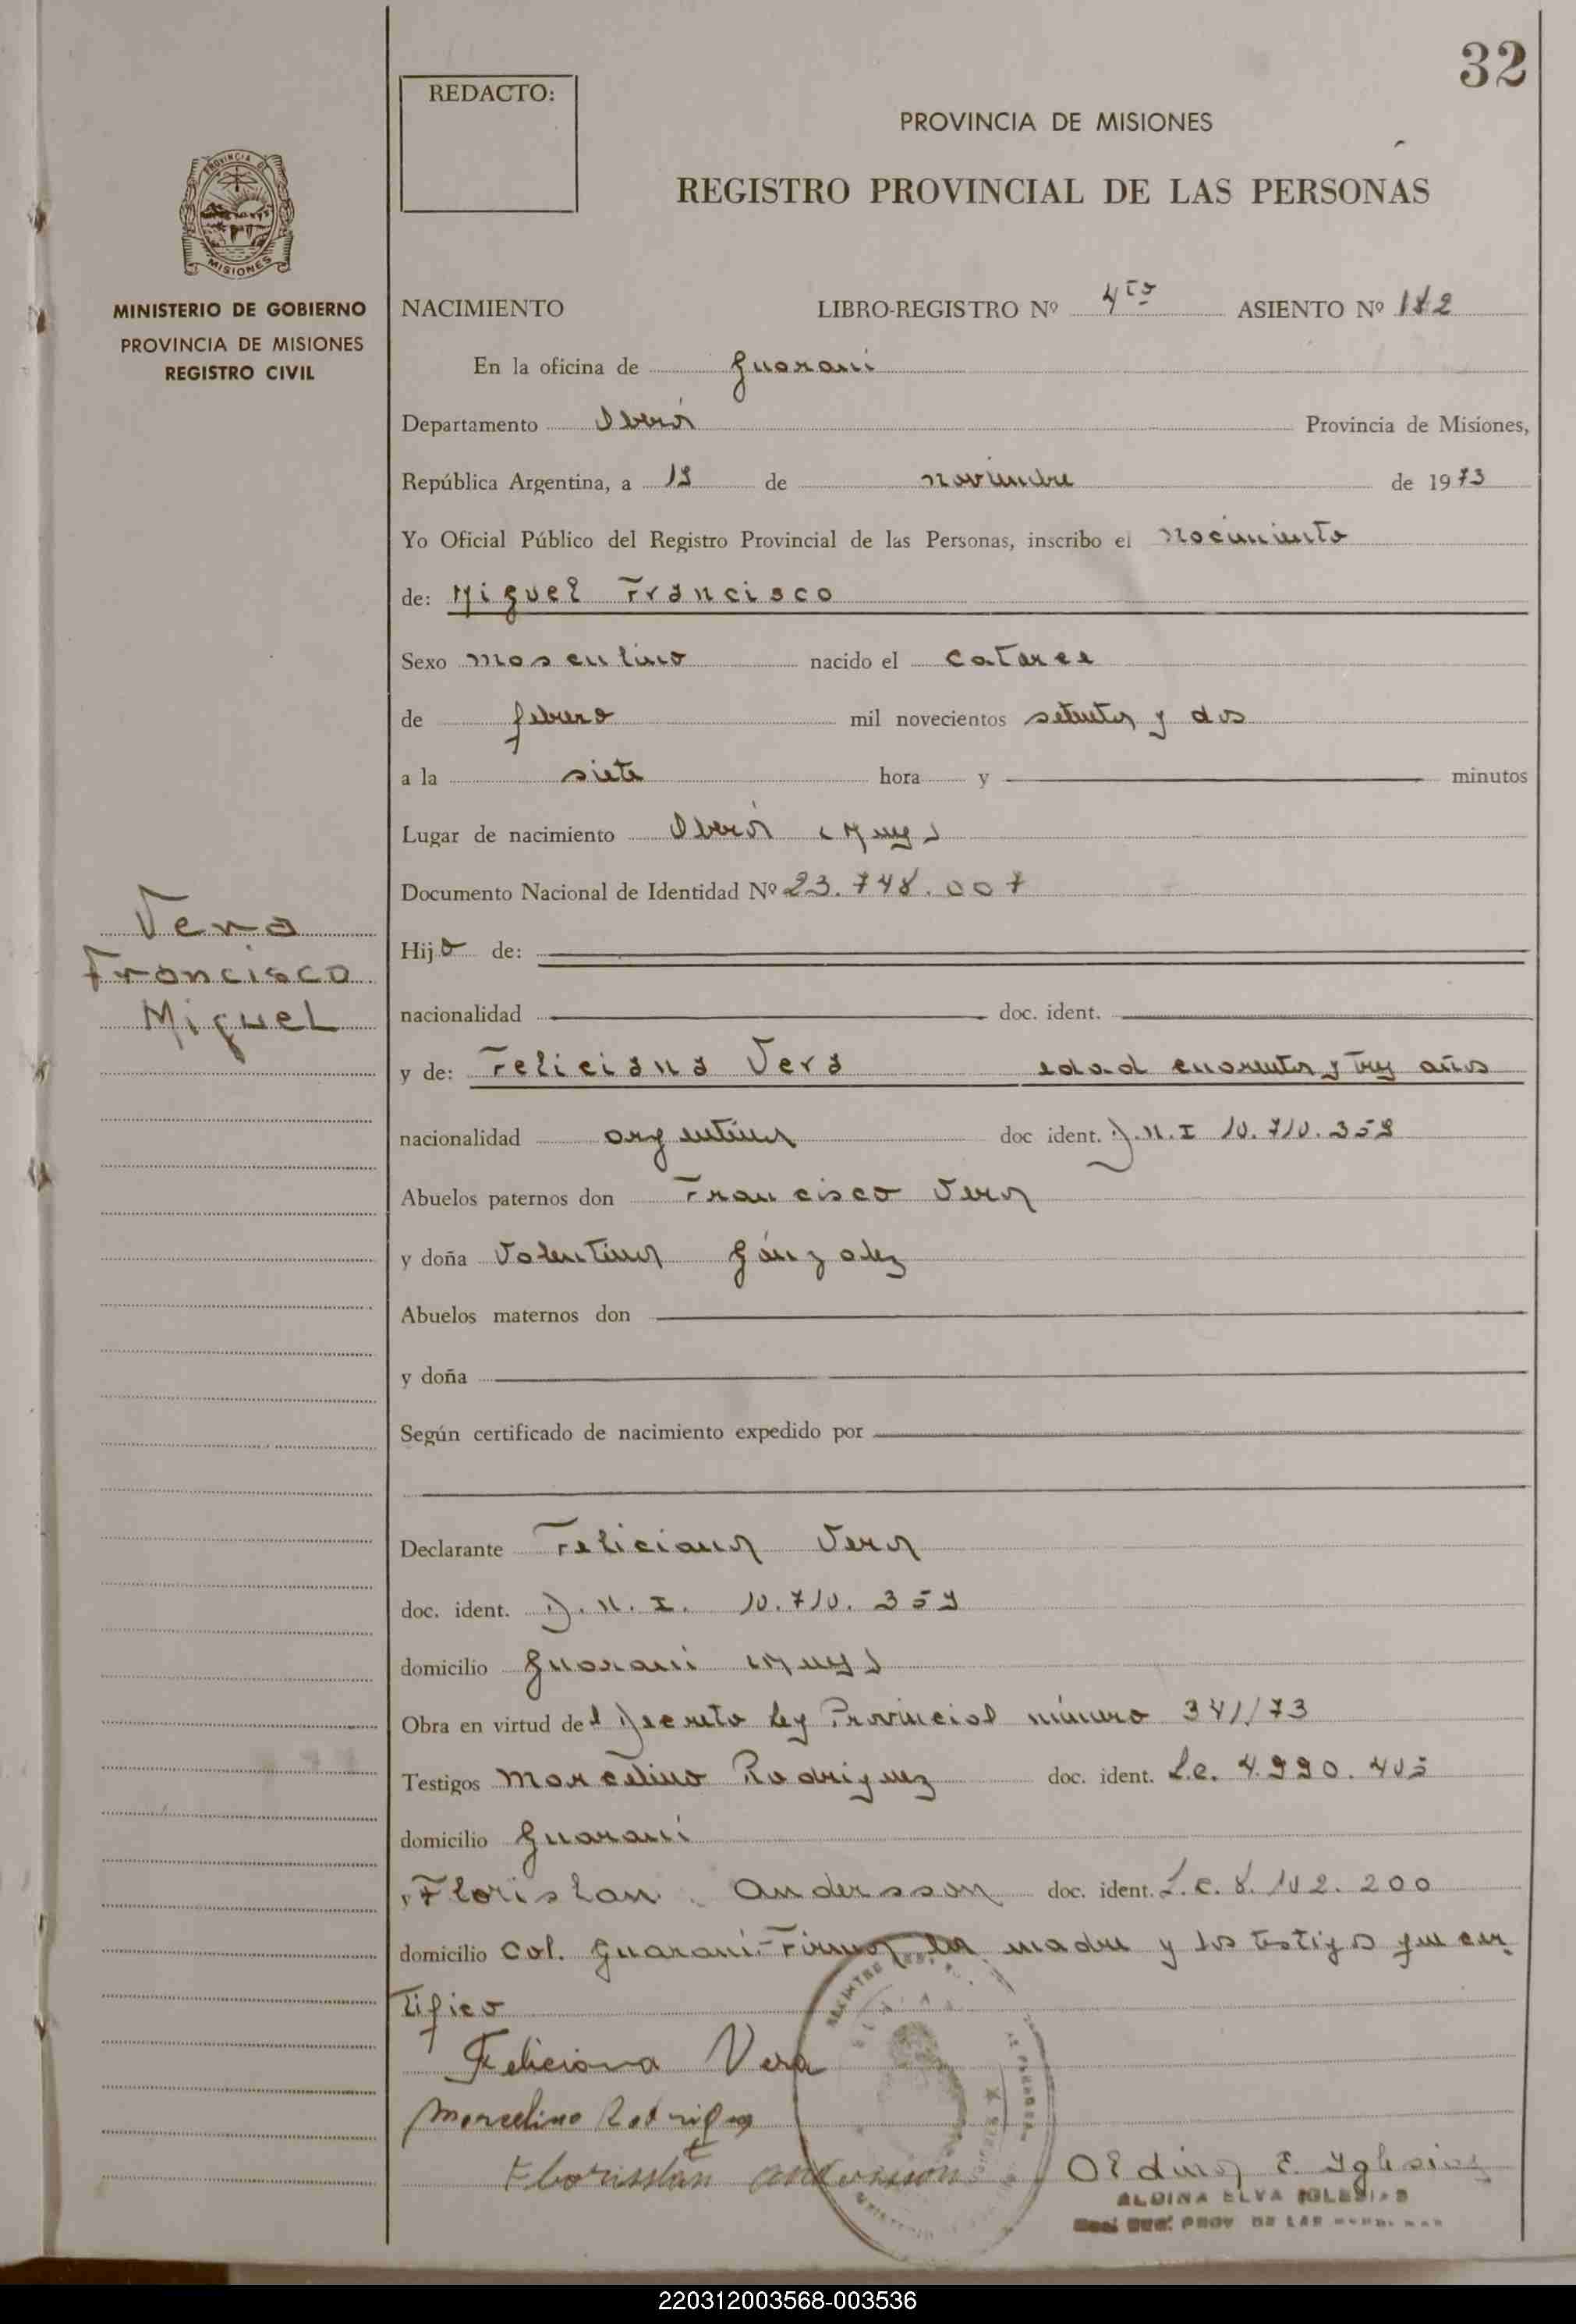 32
REDACTO:
PROVINCIA DE MISIONES
REGISTRO PROVINCIAL DE LAS PERSONAS
PROVINCIA DE
MISIONES
MINISTERIO DE GOBIERNO
PROVINCIA DE MISIONES
REGISTRO CIVIL
NACIMIENTO LIBRO-REGISTRO Nº 4to ASIENTO Nº 182
En la oficina de Guarani
Departamento Oberá Provincia de Misiones,
República Argentina, a 19 de noviembre de 1973
Yo Oficial Público del Registro Provincial de las Personas, inscribo el nacimiento
de: Miguel Francisco
Sexo masculino nacido el catorce
de febrero mil novecientos setenta y dos
a la siete hora y minutos
Lugar de nacimiento Oberá (Mnes)
Documento Nacional de Identidad Nº 23.748.007
Vera
Francisco
Miguel
Hijo de:
nacionalidad doc. ident.
y de: Feliciana Vera edad cuarenta y tres años
nacionalidad argentina doc ident. D.N.I 10.710.359
Abuelos paternos don Francisco Vera
y doña Valentina Gánzalez
Abuelos maternos don
y doña
Según certificado de nacimiento expedido por
Declarante Feliciana Vera
doc. ident. D.N.I. 10.710.359
domicilio Guarani (Mnes)
Obra en virtud del Decreto Ley Provincial número 341/73
Testigos Marcelino Rodriguez doc. ident. L.E. 4.990.405
domicilio Guarani
y Florislan Andersson doc. ident. L.E. 8.102.200
domicilio Col. Guarani-Firma la madre y los testigos que cer
tifico
Feliciana Vera
Marcelino Rodriguez
Florisslan andersson
Aldina E. Iglesias
ALDINA ELVA IGLESIAS
PROV DE LAS
220312003568-003536